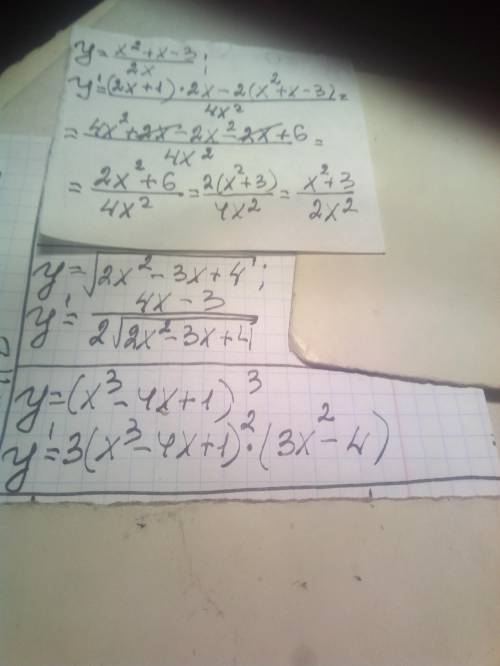 y = (x² + x - 3)/(2x);
y' = ((2x+1)·2x - 2(x²+x-3))/(4x²) =
= (4x² + 2x - 2x² - 2x + 6)/(4x²) =
= (2x² + 6)/(4x²) = (2(x²+3))/(4x²) = (x²+3)/(2x²)
y = √(2x² - 3x + 4);
y' = (4x - 3)/(2√(2x² - 3x + 4))
y = (x³ - 4x + 1)³
y' = 3(x³ - 4x + 1)²·(3x² - 4)